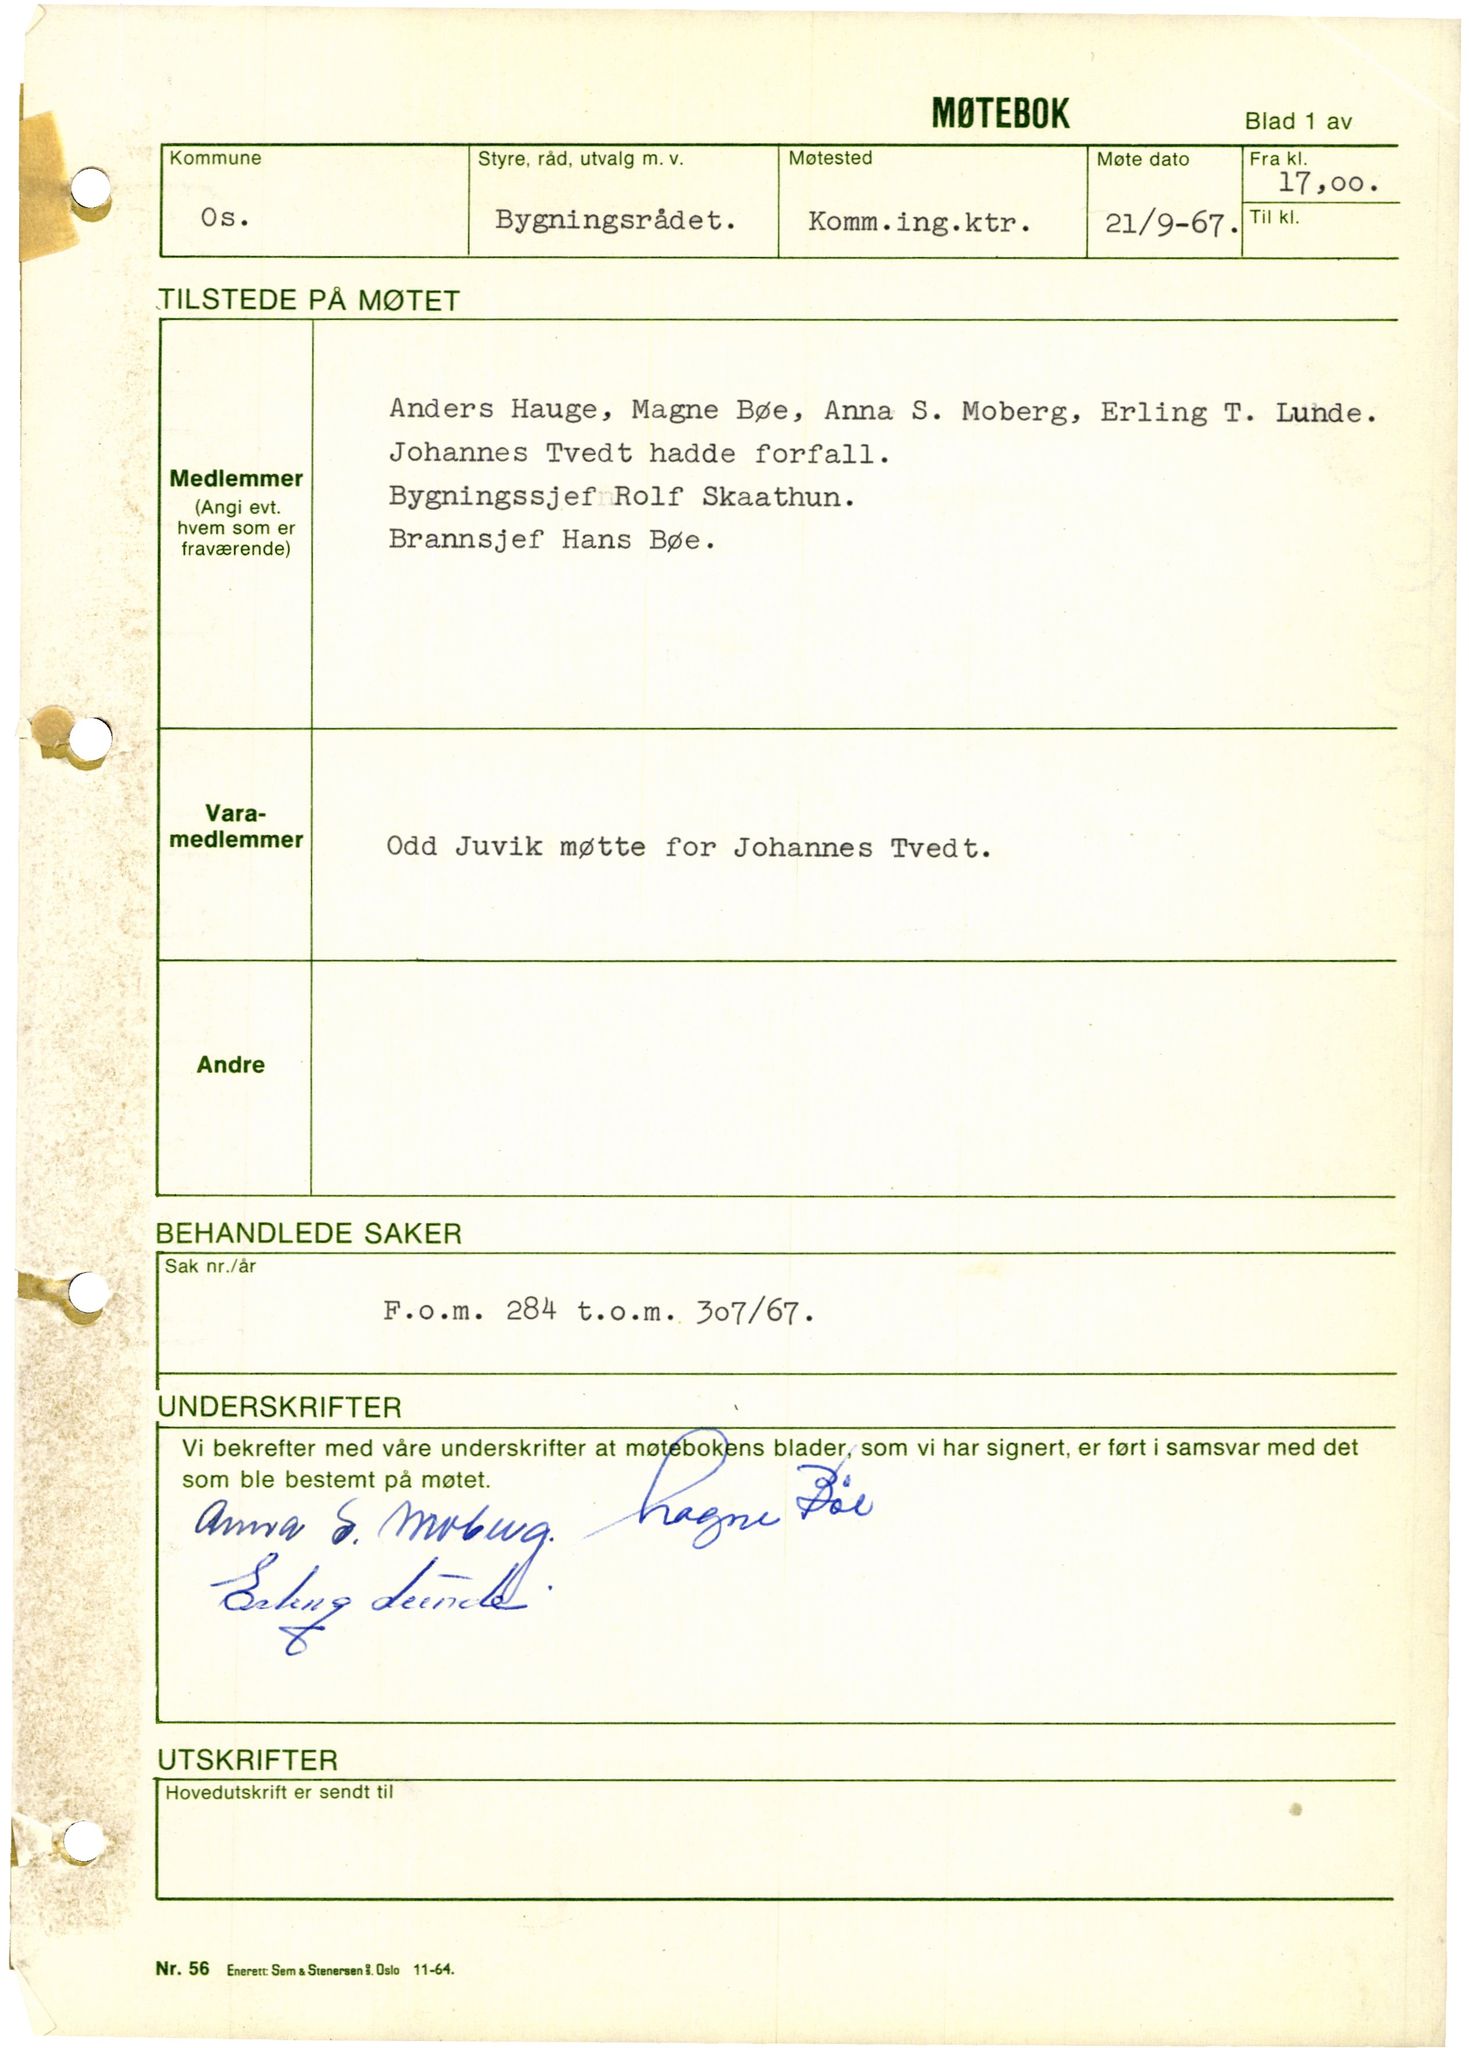 MØTEBOK
Blad 1 av
Kommune
Os.
Styre, råd, utvalg m. v.
Bygningsrådet.
Møtested
Komm.ing.ktr.
Møte dato
21/9-67.
Fra kl.
17,oo.
Til kl.
TILSTEDE PÅ MØTET
Medlemmer
(Angi evt.
hvem som er
fraværende)
Anders Hauge, Magne Bøe, Anna S. Moberg, Erling T. Lunde.
Johannes Tvedt hadde forfall.
Bygningssjef Rolf Skaathun.
Brannsjef Hans Bøe.
Vara-
medlemmer
Odd Juvik møtte for Johannes Tvedt.
Andre
BEHANDLEDE SAKER
Sak nr./år
F.o.m. 284 t.o.m. 3o7/67.
UNDERSKRIFTER
Vi bekrefter med våre underskrifter at møtebokens blader, som vi har signert, er ført i samsvar med det
som ble bestemt på møtet.
Anna S. Moberg. Magne Bøe
Erling Lunde
UTSKRIFTER
Hovedutskrift er sendt til
Nr. 56 Enerett: Sem & Stenersen A/S. Oslo 11-64.